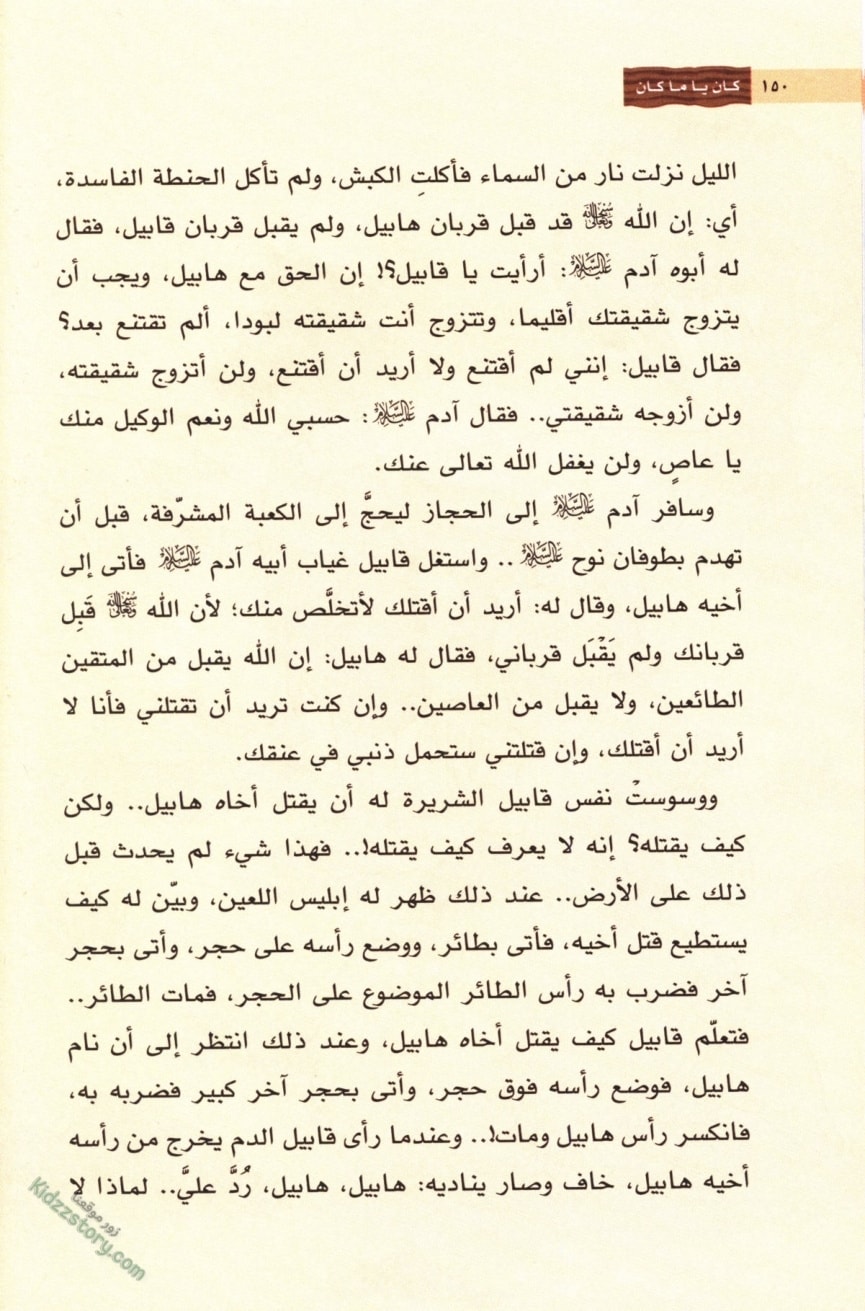 ١٥٠ كان يا ما كان
الليل نزلت نار من السماء فأكلتِ الكبش، ولم تأكل الحنطة الفاسدة،
أي: إن الله ﷾ قد قبل قربان هابيل، ولم يقبل قربان قابيل، فقال
له أبوه آدم عليه السلام: أرأيت يا قابيل؟! إن الحق مع هابيل، ويجب أن
يتزوج شقيقتك أقليما، وتتزوج أنت شقيقته لبودا، ألم تقتنع بعد؟
فقال قابيل: إنني لم أقتنع ولا أريد أن أقتنع، ولن أتزوج شقيقته،
ولن أزوجه شقيقتي.. فقال آدم عليه السلام: حسبي الله ونعم الوكيل منك
يا عاصٍ، ولن يغفل الله تعالى عنك.
وسافر آدم عليه السلام إلى الحجاز ليحجَّ إلى الكعبة المشرّفة، قبل أن
تهدم بطوفان نوح عليه السلام .. واستغل قابيل غياب أبيه آدم عليه السلام فأتى إلى
أخيه هابيل، وقال له: أريد أن أقتلك لأتخلَّص منك؛ لأن الله ﷾ قَبِل
قربانك ولم يَقْبَل قرباني، فقال له هابيل: إن الله يقبل من المتقين
الطائعين، ولا يقبل من العاصين.. وإن كنت تريد أن تقتلني فأنا لا
أريد أن أقتلك، وإن قتلتني ستحمل ذنبي في عنقك.
ووسوستْ نفس قابيل الشريرة له أن يقتل أخاه هابيل.. ولكن
كيف يقتله؟ إنه لا يعرف كيف يقتله!.. فهذا شيء لم يحدث قبل
ذلك على الأرض.. عند ذلك ظهر له إبليس اللعين، وبيّن له كيف
يستطيع قتل أخيه، فأتى بطائر، ووضع رأسه على حجر، وأتى بحجر
آخر فضرب به رأس الطائر الموضوع على الحجر، فمات الطائر..
فتعلّم قابيل كيف يقتل أخاه هابيل، وعند ذلك انتظر إلى أن نام
هابيل، فوضع رأسه فوق حجر، وأتى بحجر آخر كبير فضربه به،
فانكسر رأس هابيل ومات!.. وعندما رأى قابيل الدم يخرج من رأسه
أخيه هابيل، خاف وصار يناديه: هابيل، هابيل، رُدَّ عليَّ.. لماذا لا
زور موقعنا
Kidzzstory.com